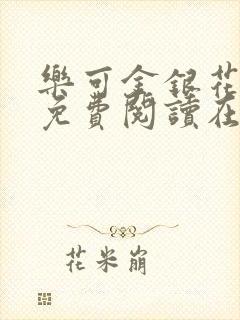 樂可金銀花
免費閱讀在
花米崩